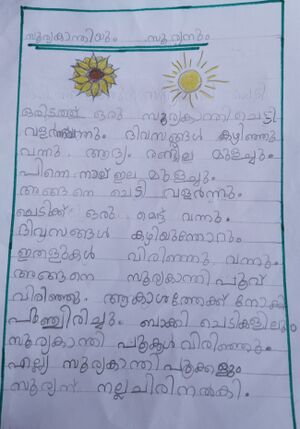 സൂര്യകാന്തിയും സൂര്യനും
ഒരിടത്ത് ഒരു സൂര്യകാന്തി ചെട്ടി
വളർന്നു. ദിവസങ്ങൾ കഴിഞ്ഞു
വന്നു. ആദ്യം രണ്ടില മുളച്ചും.
പിന്നെ നാല് ഇല മുളച്ചും.
അങ്ങനെ ചെട്ടി വളർന്നും.
ചെടിക്ക് ഒരു മൊട്ട് വന്നും.
ദിവസങ്ങൾ കഴിയുന്തോറും
ഇതളുകൾ വിരിഞ്ഞു വന്നും.
അങ്ങനെ സൂര്യകാന്തി പൂവ്
വിരിഞ്ഞു. ആകാശത്തേക്ക് നോക്കി
പുഞ്ചിരിച്ചും. ബാക്കി ചെടികളിലും
സൂര്യകാന്തി പൂക്കൾ വിരിഞ്ഞും.
എല്ലാ സൂര്യകാന്തി പൂക്കളും
സൂര്യന് നല്ല ചിരി നൽകി.